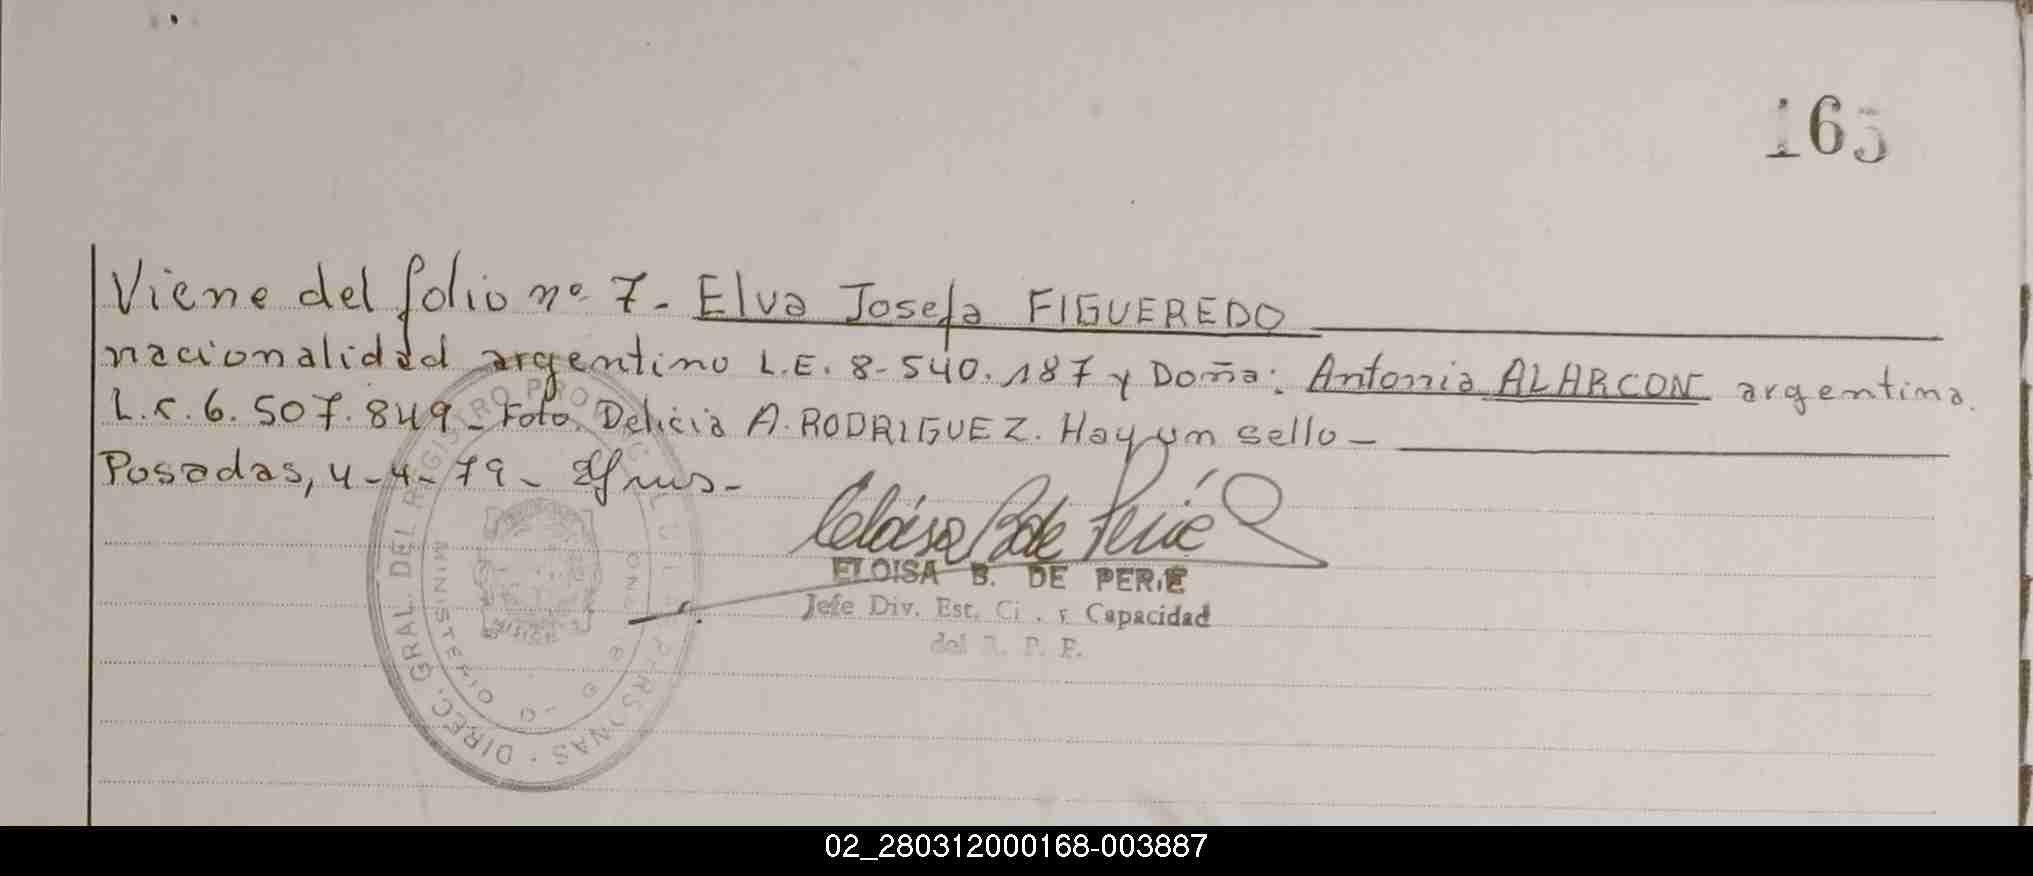 165
Viene del folio nº 7- Elva Josefa FIGUEREDO
nacionalidad argentino L.E. 8-540.187 y Doña: Antonia ALARCON argentina.
L.C. 6.507.849- Foto. Delicia A. RODRIGUEZ. Hay un sello-
Posadas, 4-4-79-
ELOISA B. DE PERIE
Jefe Div. Est. Ci . y Capacidad
del R. P. P.
DIREC. GRAL. DEL REGISTRO PERSONAS
MINISTERIO
02_280312000168-003887